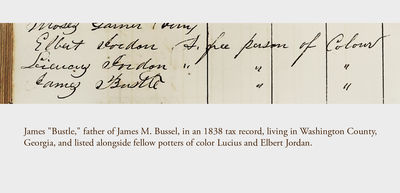 Elbert Jordan S. free person of Colour
Jordan " " "
James Bustle " "
James "Bustle," father of James M. Bussel, in an 1838 tax record, living in Washington County,
Georgia, and listed alongside fellow potters of color Lucius and Elbert Jordan.